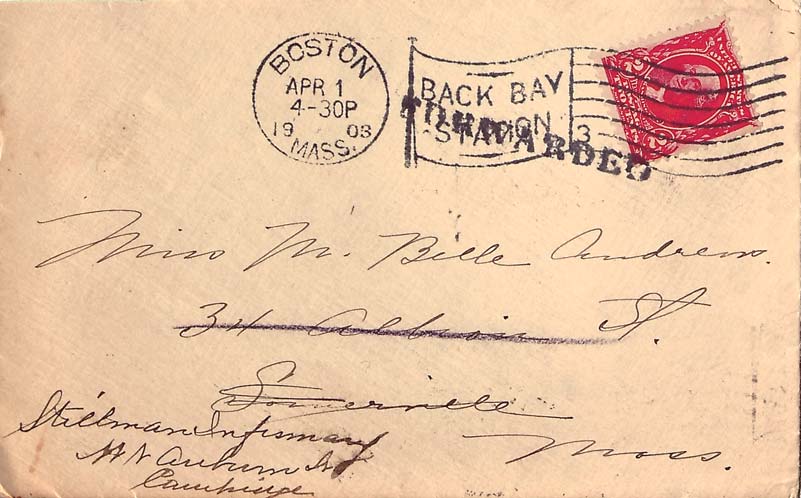 BOSTON
APR 1
4-30P
1903
MASS.
BACK BAY
STATION
3
FORWARDED
2 2
Miss M. Belle Andrews.
34 Albion St.
Somerville
Mass.
Stillman Infirmary
Mt Auburn St
Cambridge